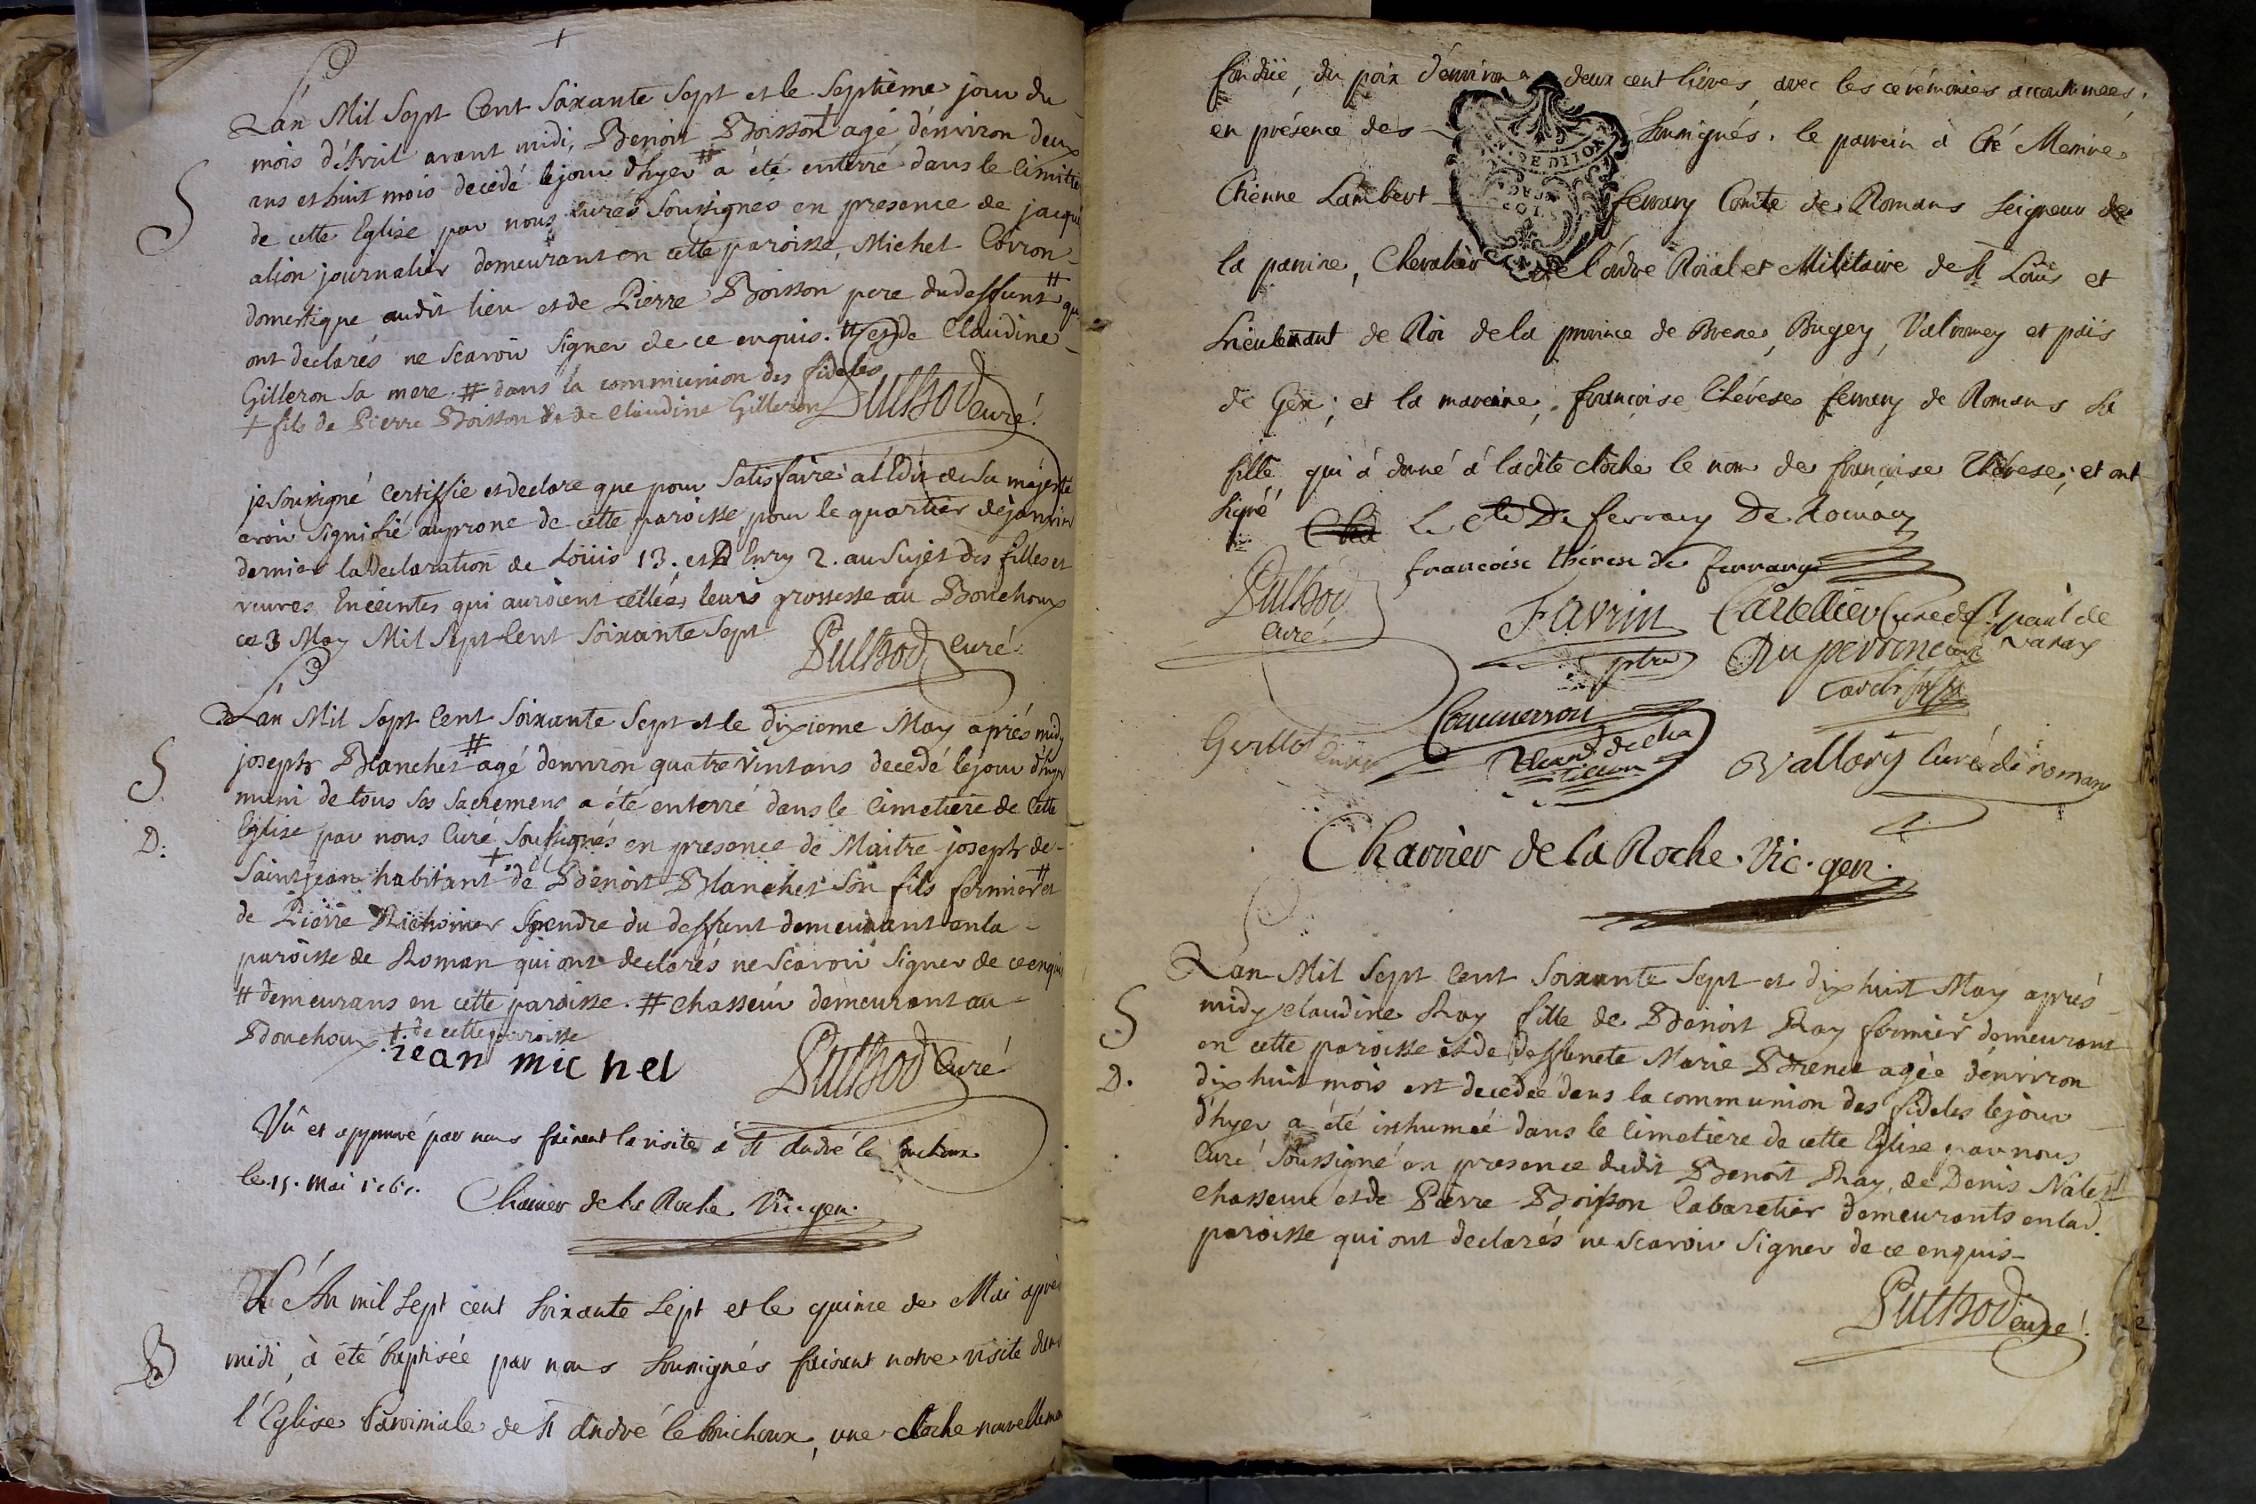 L'an Mil Sept Cent Soixante Sept et le Septième jour du
mois d'Avril avant midi, Benoit Boisson + agé d'environ deux
ans et huit mois decedé le jour d'hyer # a été enterré dans le Cimitie
de cette Eglise par nous Curés Soussignés en presence de jacque
alion journalier demeurant en cette paroisse, Michel Covron
domestique audit lieu et de Pierre Boisson pere du deffunt # qui
ont declarés ne Scavoir Signer de ce enquis. # et de Claudine
Gilleron Sa mere. # dans la communion des fideles
+ fils de Pierre Boisson & de Claudine Gilleron Puthod Curé
S
je Soussigné Certiffie et declare que pour Satisfaire a l'Edit de Sa majesté
avoir Signifié au prone de cette paroisse pour le quartier de janvier
dernier la Declaration de Loüis 13. et d'Enry 2. au Sujet des filles et
veuves Enceintes qui auroient cellées leurs grossesse au Bouchoux
ce 3 May Mil Sept Cent Soixante Sept Puthod Curé
L'an Mil Sept Cent Soixante Sept et le dixieme May après midy
S joseph Blanchet # agé d'environ quatre vint ans decedé le jour d'hyer
muni de tous Ses Sacremens a été enterré dans le Cimetiere de Cette
D: Eglise par nous Curé Soussignés en presence de Maitre joseph de
Saint jean habitant + de Benoit Blanchet Son fils fermier # et
de Pierre Gendre du deffunt demeurant en la
paroisse de Roman qui ont declarés ne Scavoir Signer de ce enquis
# demeurans en cette paroisse. # chasseur demeurant au
Bouchoux + de cette paroisse
jean michel Puthod Curé
Vû et approuvé par nous faisant la visite à St André le bouchoux
le 15. mai 1767.
Charrier de la Roche Vic. gen.
L'An mil Sept cent Soixante Sept et le quinze de Mai après
B midi, à été baptisée par nous Soussignés faisant notre visite dans
l'Eglise Paroissiale de St André le bouchoux, une cloche nouvellement
fondüe, du poix d'environ deux cent livres, avec les cérémonies accoutumées,
en présence des Soussignés. le parrein à été Messire
Etienne Lambert ferrary Comte de Romans Seigneur de
la , Chevalier de l'ordre Roïal et Militaire de St Loüis et
Lieutenant de Roi de la province de Bresse, Bugey, Valromey et païs
de Gex; et la mareine, françoise Thérese ferrary de Romans Sa
fille qui à donné à ladite cloche le nom de françoise Thérese; et ont
Signé Le Cte De ferrary De Romans
francoise thérese de ferrary
Puthod Curé
Favrin ptre
Cartellier Curé de St paul de Varax
Duperron curé
Commerson
Guillot Curé
Vallory Curé de romans
Charrier de la Roche. Vic. gen.
L'an Mil Sept Cent Soixante Sept et dix huit May après
S midy Claudine Ray fille de Benoit Ray fermier demeurant
en cette paroisse et de deffuncte Marie agée d'environ
D. dix huit mois est decedée dans la communion des fideles le jour
d'hyer a été inhumée dans le Cimetiere de cette Eglise par nous
Curé Soussigné en presence dudit Benoit Ray, de Denis
chasseur et de Pierre Boisson Cabaretier demeurants en lad.
paroisse qui ont declarés ne Scavoir Signer de ce enquis
Puthod curé